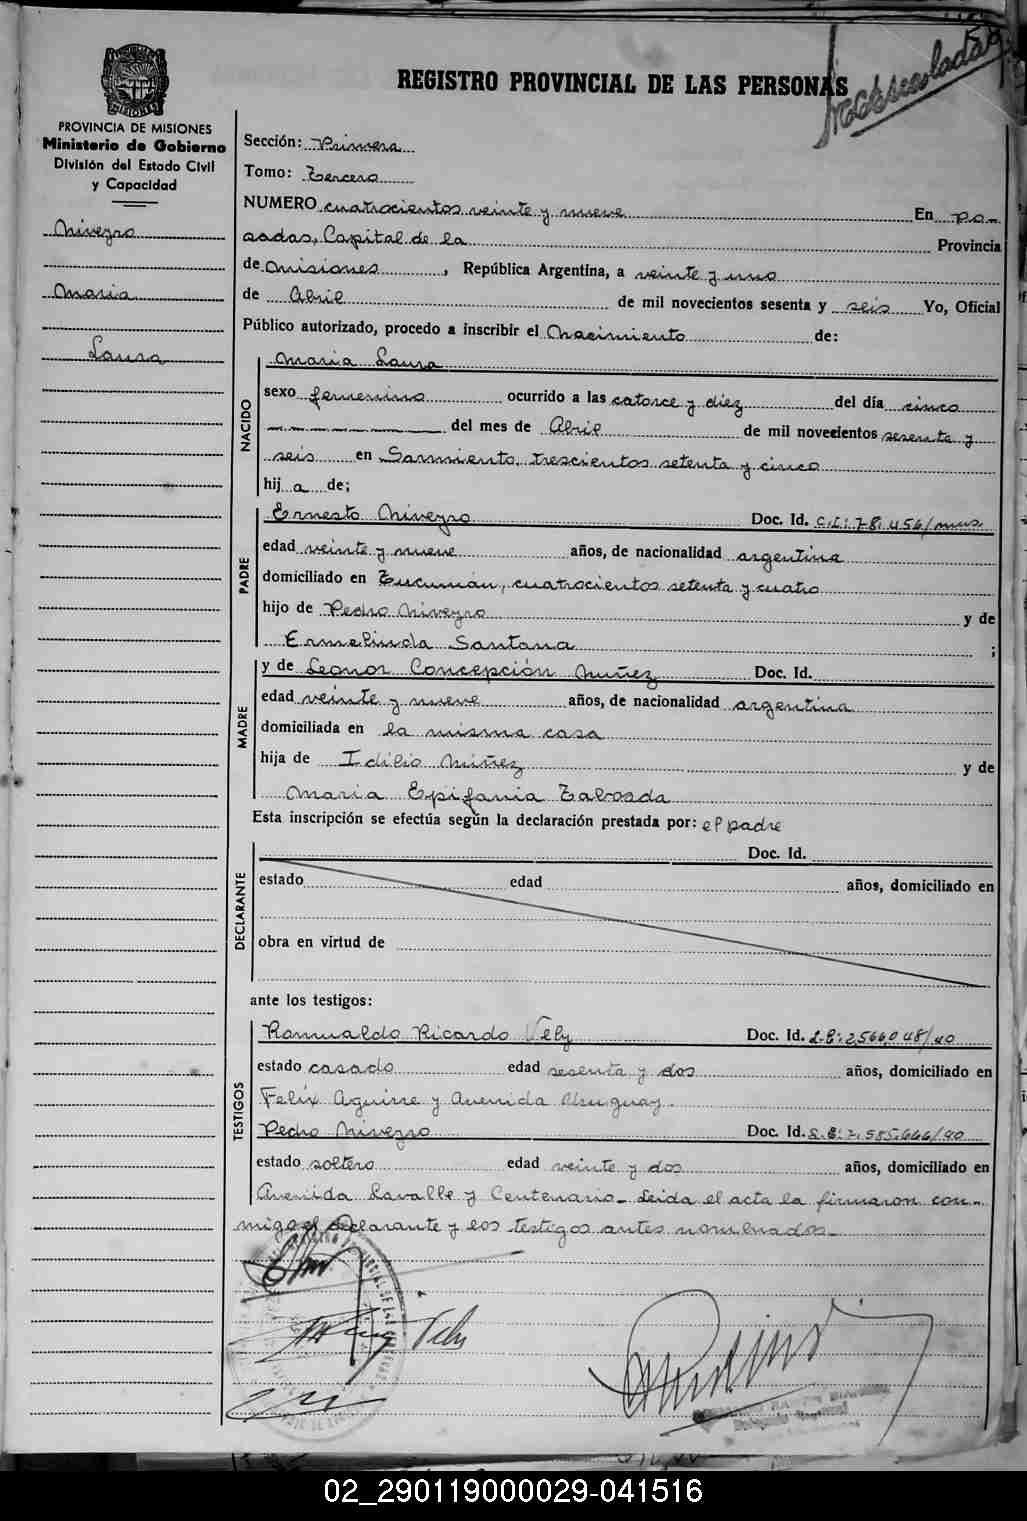 REGISTRO PROVINCIAL DE LAS PERSONAS
PROVINCIA DE MISIONES
Ministerio de Gobierno
División del Estado Civil
y Capacidad
Niveyro
Maria
Laura
Sección: Primera
Tomo: Tercero
NUMERO cuatrocientos veinte y nueve En Po-
sadas, Capital de la Provincia
de Misiones, República Argentina, a veinte y uno
de Abril de mil novecientos sesenta y seis Yo, Oficial
Público autorizado, procedo a inscribir el Nacimiento de:
NACIDO
Maria Laura
sexo femenino ocurrido a las catorce y diez del día cinco
del mes de Abril de mil novecientos sesenta y
seis en Sarmiento, trescientos setenta y cinco
hij a de;
PADRE
Ernesto Niveyro Doc. Id. C.I: 78.456/mns
edad veinte y nueve años, de nacionalidad argentina
domiciliado en Tucumán, cuatrocientos setenta y cuatro
hijo de Pedro Niveyro y de
Ermelinda Santana ;
MADRE
y de Leonor Concepción Nuñez Doc. Id.
edad veinte y nueve años, de nacionalidad argentina
domiciliada en la misma casa
hija de Idilio Nuñez y de
Maria Epifania Taboada
Esta inscripción se efectúa según la declaración prestada por: el padre
DECLARANTE
Doc. Id.
estado edad años, domiciliado en
obra en virtud de
ante los testigos:
TESTIGOS
Romualdo Ricardo Vely Doc. Id. L.E: 2.566.048/40
estado casado edad sesenta y dos años, domiciliado en
Felix Aguirre y Avenida Uruguay.
Pedro Niveyro Doc. Id. 585.666/40
estado soltero edad veinte y dos años, domiciliado en
Avenida Lavalle y Centenario_ Leida el acta la firmaron con-
migo el declarante y los testigos antes nombrados_
02_290119000029-041516